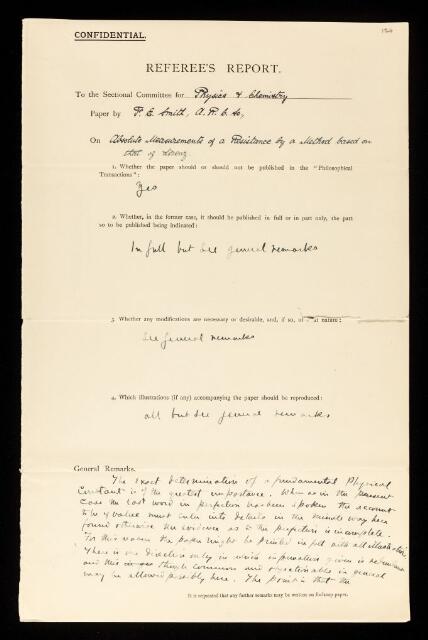 CONFIDENTIAL.
REFEREE'S REPORT.
To the Sectional Committee for Physics & Chemistry
Paper by F. E. Smith, A.R.C.Sc,
On Absolute Measurements of a Resistance by a Method based on
that of Lorenz.
1. Whether the paper should or should not be published in the "Philosophical
Transactions":
Yes
2. Whether, in the former case, it should be published in full or in part only, the part
so to be published being indicated:
In full but see general remarks
3. Whether any modifications are necessary or desirable, and, if so, of nature:
see general remarks
4. Which illustrations (if any) accompanying the paper should be reproduced:
all but see general remarks
General Remarks.
The exact determination of a fundamental Physical
Constant is of the greatest importance. When as in the present
case the last word in perfection has been spoken the account
to be of value must enter into details in the minute way here
found otherwise the evidence as to the perfection is incomplete.
For this reason the paper might be printed in full with all illustrations
There is one direction only in which information given is
and this though common and objectionable in general
may be allowed possibly here. The point is that the
It is requested that any further remarks may be written on foolscap paper.